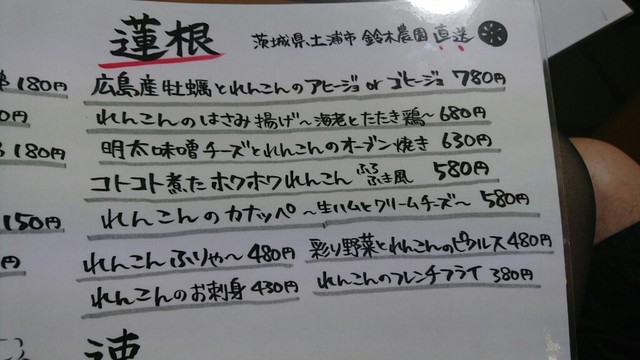 蓮根 茨城県土浦市 鈴木農園 直送
広島産牡蠣とれんこんのアヒージョ or ゴヒージョ 780円
れんこんのはさみ揚げ〜海老とたたき鶏〜 680円
明太味噌チーズとれんこんのオーブン焼き 630円
コトコト煮たホクホクれんこん ふろふき風 580円
れんこんのカナッペ〜生ハムとクリームチーズ〜 580円
れんこんふりゃ〜 480円 彩り野菜とれんこんのピクルス 480円
れんこんのお刺身 430円 れんこんのフレンチフライ 380円
180円
0円
180円
150円
円